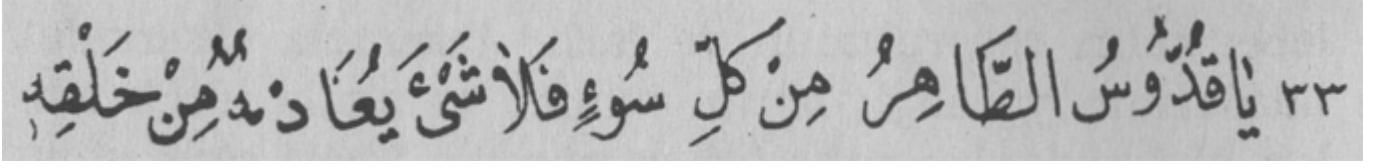 ٣٣ يَا قُدُّوسُ الطَّاهِرُ مِنْ كُلِّ سُوءٍ فَلَا شَىْءَ مِنْ خَلْقِهِ